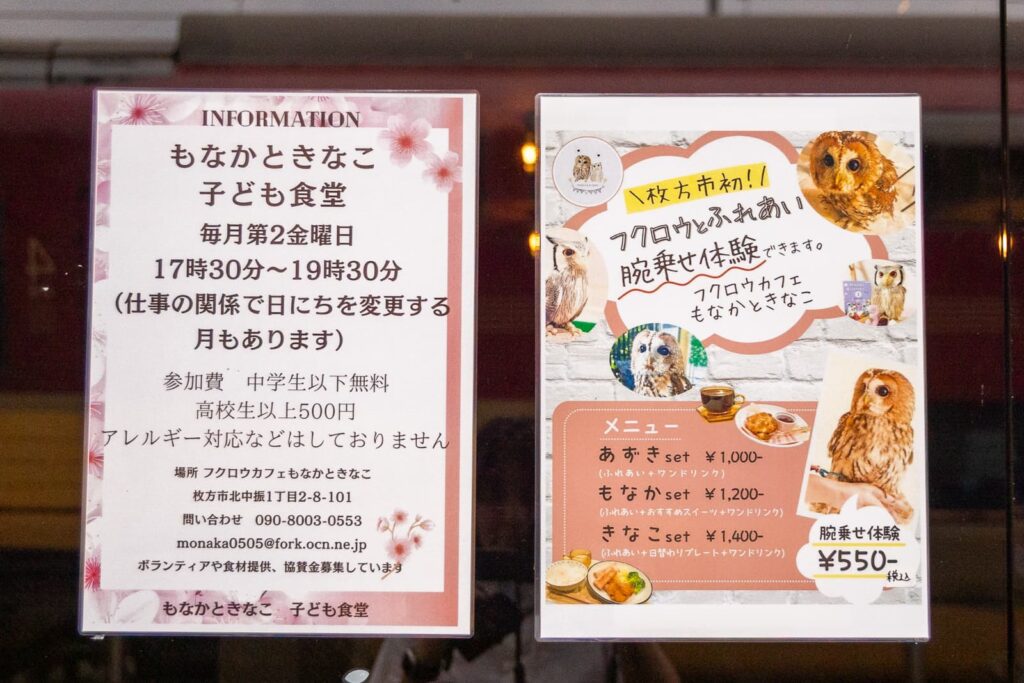 INFORMATION
もなかときなこ
子ども食堂
毎月第2金曜日
17時30分～19時30分
（仕事の関係で日にちを変更する
月もあります）
参加費　中学生以下無料
高校生以上500円
アレルギー対応などはしておりません
場所 フクロウカフェもなかときなこ
枚方市北中振1丁目2-8-101
問い合わせ　090-8003-0553
monaka0505@fork.ocn.ne.jp
ボランティアや食材提供、協賛金募集しています
もなかときなこ　子ども食堂
\枚方市初！/
フクロウとふれあい
腕乗せ体験できます。
フクロウカフェ
もなかときなこ
メニュー
あずきset ￥1,000-
(ふれあい+ワンドリンク)
もなかset ￥1,200-
(ふれあい+おすすめスイーツ+ワンドリンク)
きなこset ￥1,400-
(ふれあい+日替わりプレート+ワンドリンク)
腕乗せ体験
¥550-
税込